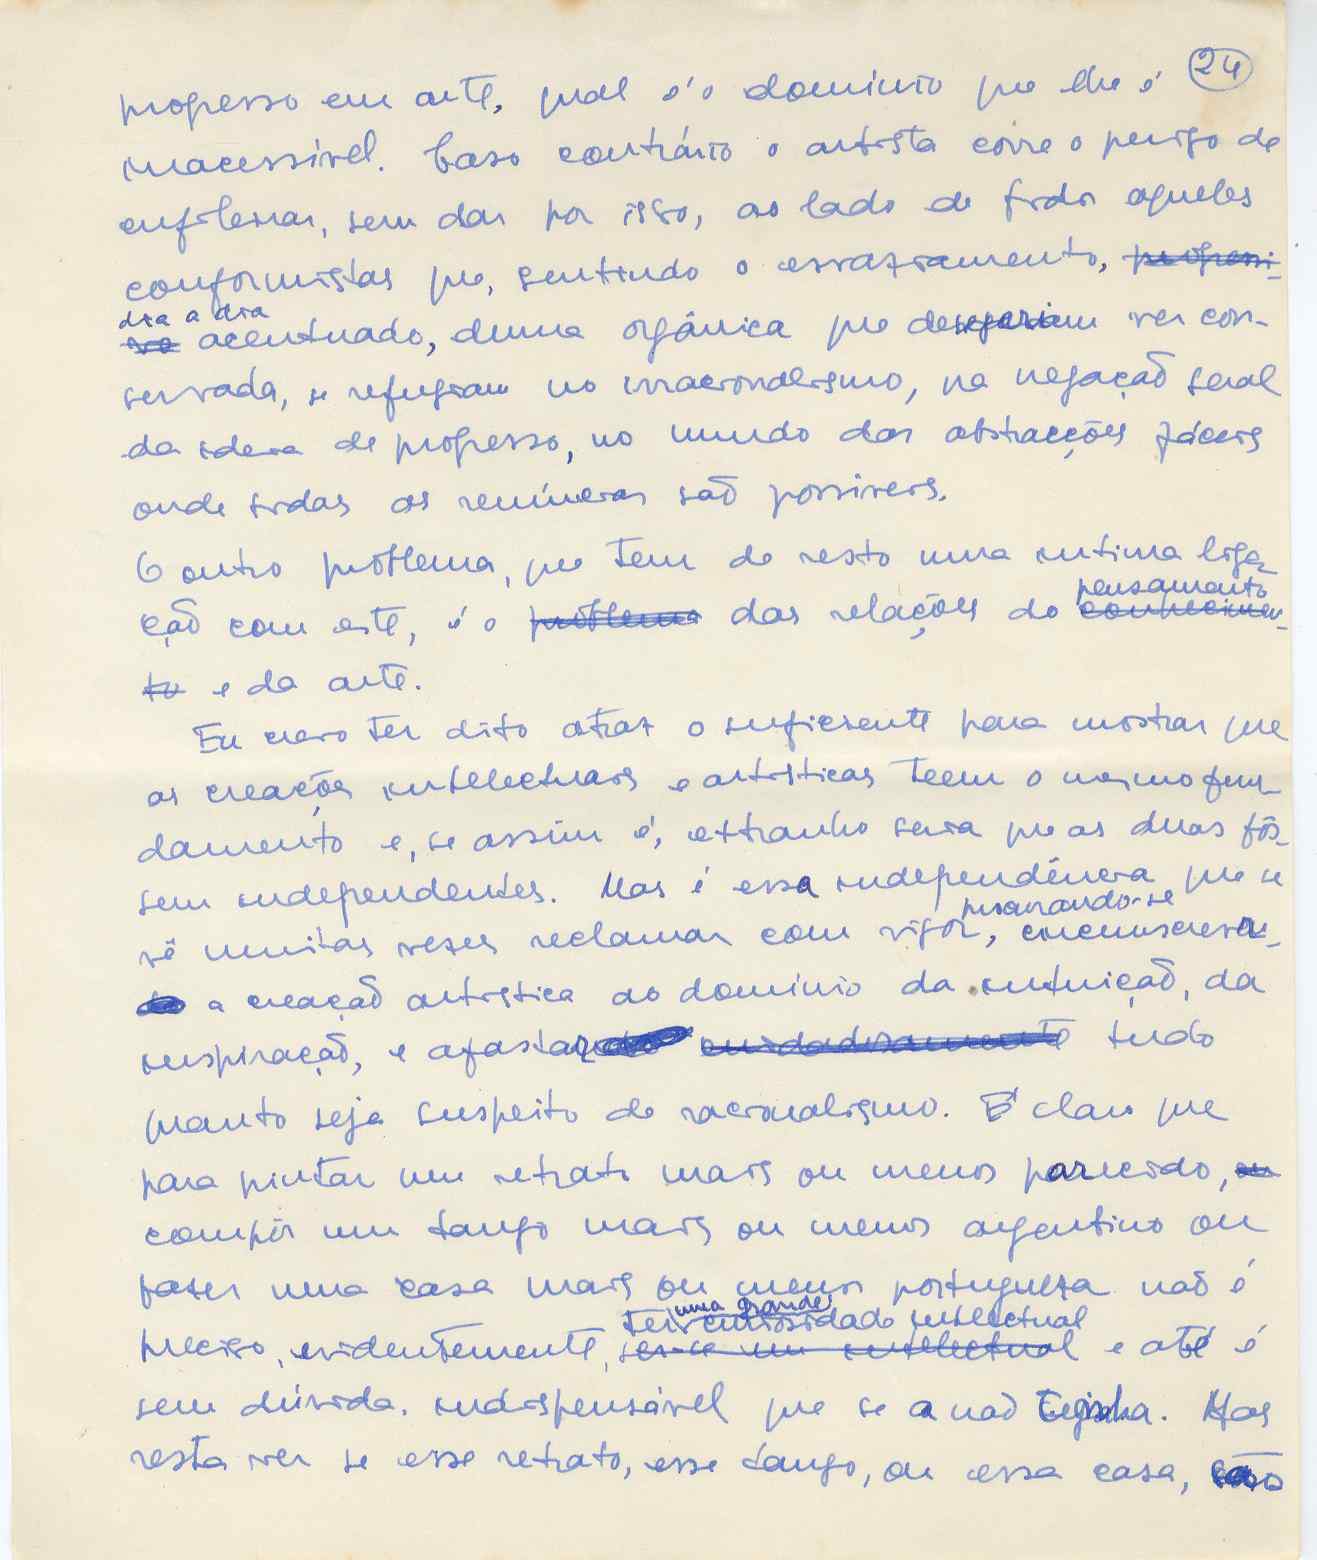 24
progresso em arte, qual é o domínio que lhe é
inacessível. Caso contrário o artista corre o perigo de
enfileirar, sem dar por isso, ao lado de todos aqueles
conformistas que, sentindo o esvaziamento, progressi-
dia a dia
vo acentuado, duma orgânica que desejariam ver con-
servada, se refugiam no irracionalismo, na negação geral
da ideia de progresso, no mundo das abstracções fáceis
onde todas as renúncias são possíveis.
O outro problema, que tem de resto uma intima liga-
pensamento
ção com este, é o problema das relações do conhecimen-
to e da arte.
Eu creio ter dito atraz o suficiente para mostrar que
as creações intelectuais e artisticas teem o mesmo fun-
damento e, se assim é, extranho seria que as duas fôs-
sem independentes. Mas é essa independência que se
procurando-se
vê muitas vezes reclamar com vigor, circunscrever
a creação artistica ao domínio da intuição, da
inspiração, e afastar cuidadosamente tudo
quanto seja suspeito de racionalismo. É claro que
para pintar um retrato mais ou menos parecido, ou
compôr um tango mais ou menos argentino ou
fazer uma casa mais ou menos portugueza não é
uma grande
ter curiosidade intelectual
preciso, evidentemente, ser-se um intelectual e até é
sem dúvida, indispensável que se a não tenha. Mas
resta ver se esse retrato, esse tango, ou essa casa, são